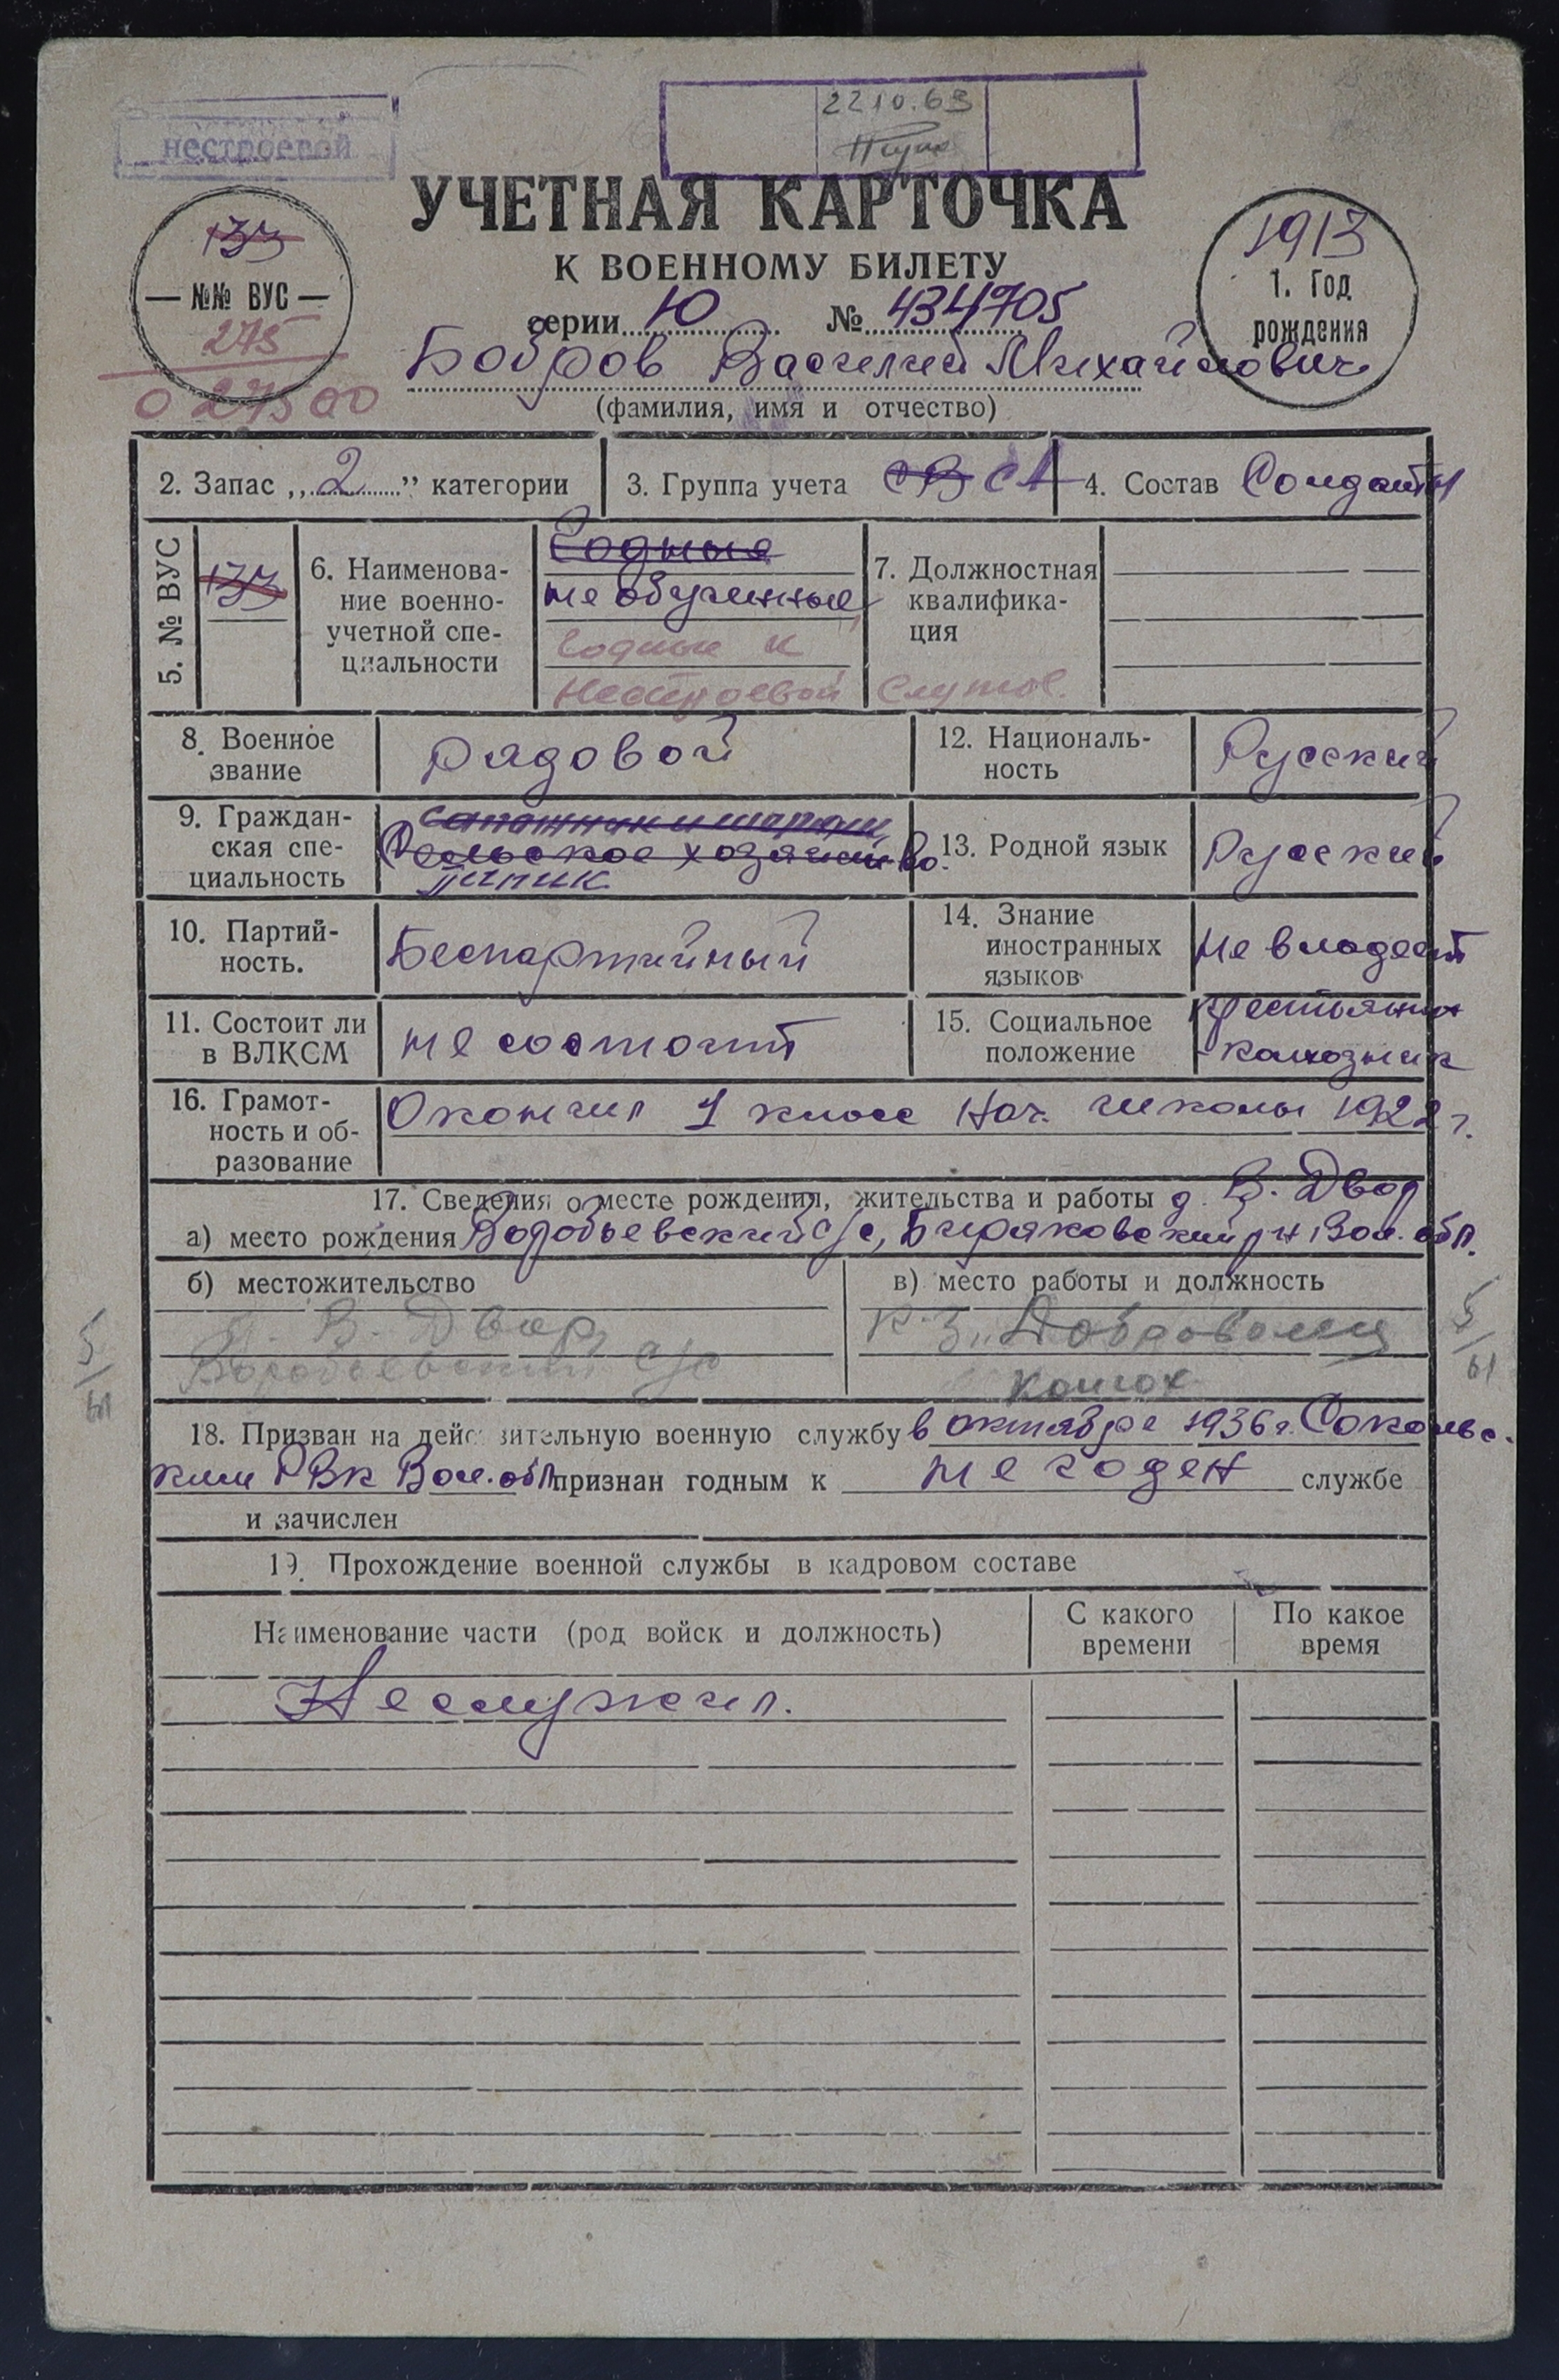 нестроевой
22 10.63
УЧЕТНАЯ КАРТОЧКА
К ВОЕННОМУ БИЛЕТУ
серии Ю № 434705
133
— №№ ВУС —
275
0 27500
1913
1. Год
рождения
Бобров Василий Михайлович
(фамилия, имя и отчество)
2. Запас „2” категории
3. Группа учета СВ СА
4. Состав Солдаты
5. № ВУС
133
6. Наименова-
ние военно-
учетной спе-
циальности
Годные
не обученные
годные к
нестроевой служб.
7. Должностная
квалифика-
ция
8. Военное
звание
Рядовой
12. Националь-
ность
Русский
9. Граждан-
ская спе-
циальность
Сельское хозяйство.
13. Родной язык
Русский
10. Партий-
ность.
Беспартийный
14. Знание
иностранных
языков
не владеет
11. Состоит ли
в ВЛКСМ
не состоит
15. Социальное
положение
крестьянин
колхозник
16. Грамот-
ность и об-
разование
Окончил 1 класс нач. школы 1922 г.
17. Сведения о месте рождения, жительства и работы д. В. Двор
а) место рождения Воробьевский с/с, Биряковский р-н Вол. обл.
б) местожительство
д. В. Двор,
Воробьевский с/с
в) место работы и должность
к-з „Доброволец
колхоз
5/61
5/61
18. Призван на действительную военную службу в октябре 1936 г. Соколь-
ким РВК Вол. обл признан годным к не годен службе
и зачислен
19. Прохождение военной службы в кадровом составе
Наименование части (род войск и должность)
С какого
времени
По какое
время
Не служил.